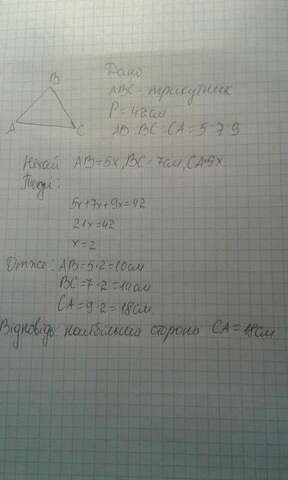 B
A
C
Дано
ABC - трикутник
P = 42см
AB:BC:CA = 5:7:9
Нехай AB=5x, BC=7см, CA=9x
Тоді:
5x+7x+9x=42
21x=42
x=2
Отже: AB=5·2=10см
BC=7·2=14см
CA=9·2=18см
Відповідь найбільша сторона CA=18см